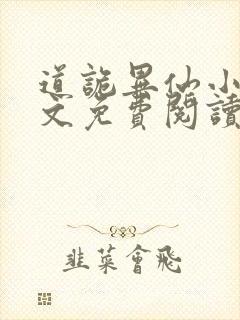 道詭異仙小
文免費閱讀
韭菜會飛